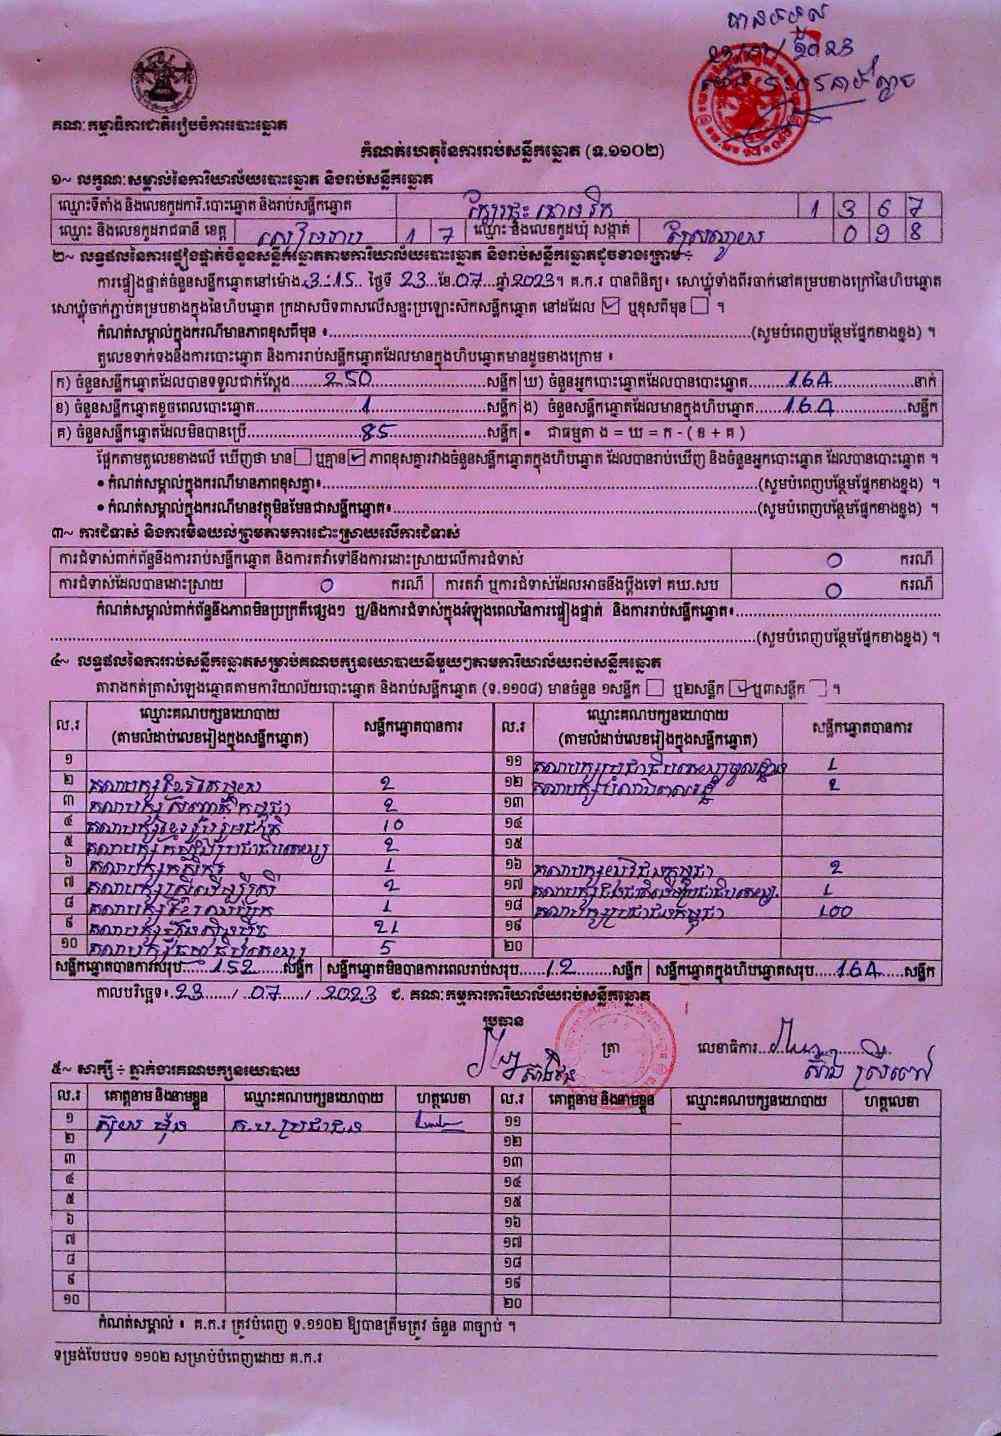 បានទទួល
គណៈកម្មាធិការជាតិរៀបចំការបោះឆ្នោត
កំណត់ហេតុនៃការរាប់សន្លឹកឆ្នោត (ទ.១១០២)
១~ លក្ខណៈសម្គាល់នៃការិយាល័យបោះឆ្នោត និងរាប់សន្លឹកឆ្នោត
ឈ្មោះទីតាំង និងលេខកូដការិ.បោះឆ្នោត និងរាប់សន្លឹកឆ្នោត 1 3 6 7
ឈ្មោះ និងលេខកូដរាជធានី ខេត្ត សៀមរាប 1 7 ឈ្មោះ និងលេខកូដឃុំ សង្កាត់ 0 9 8
២~ លទ្ធផលនៃការផ្ទៀងផ្ទាត់ចំនួនសន្លឹកឆ្នោតតាមការិយាល័យបោះឆ្នោត និងរាប់សន្លឹកឆ្នោតដូចខាងក្រោម ÷
ការផ្ទៀងផ្ទាត់ចំនួនសន្លឹកឆ្នោតនៅម៉ោង 3:15 ថ្ងៃទី 23 ខែ 07 ឆ្នាំ 2023។ គ.ក.រ បានពិនិត្យ៖ សោឃ្លុំទាំងពីរចាក់នៅគម្របខាងក្រៅនៃហិបឆ្នោត
សោឃ្លុំចាក់ភ្ជាប់គម្របខាងក្នុងនៃហិបឆ្នោត ក្រដាសបិទពាសលើសន្ទះប្រឡោះសិកសន្លឹកឆ្នោត នៅដដែល ☑ ឬខុសពីមុន ☐ ។
កំណត់សម្គាល់ក្នុងករណីមានភាពខុសពីមុន ៖ (សូមបំពេញបន្ថែមផ្នែកខាងខ្នង) ។
តួលេខទាក់ទងនឹងការបោះឆ្នោត និងការរាប់សន្លឹកឆ្នោតដែលមានក្នុងហិបឆ្នោតមានដូចខាងក្រោម ៖
ក) ចំនួនសន្លឹកឆ្នោតដែលបានទទួលជាក់ស្តែង 250 សន្លឹក ឃ) ចំនួនអ្នកបោះឆ្នោតដែលបានបោះឆ្នោត 164 នាក់
ខ) ចំនួនសន្លឹកឆ្នោតខូចពេលបោះឆ្នោត 1 សន្លឹក ង) ចំនួនសន្លឹកឆ្នោតដែលមានក្នុងហិបឆ្នោត 164 សន្លឹក
គ) ចំនួនសន្លឹកឆ្នោតដែលមិនបានប្រើ 85 សន្លឹក • ជាធម្មតា ង = ឃ = ក - ( ខ + គ )
ផ្អែកតាមតួលេខខាងលើ ឃើញថា មាន ☐ ឬគ្មាន ☑ ភាពខុសគ្នារវាងចំនួនសន្លឹកឆ្នោតក្នុងហិបឆ្នោត ដែលបានរាប់ឃើញ និងចំនួនអ្នកបោះឆ្នោត ដែលបានបោះឆ្នោត ។
• កំណត់សម្គាល់ក្នុងករណីមានភាពខុសគ្នា៖ (សូមបំពេញបន្ថែមផ្នែកខាងខ្នង) ។
• កំណត់សម្គាល់ក្នុងករណីមានវត្ថុមិនមែនជាសន្លឹកឆ្នោត៖ (សូមបំពេញបន្ថែមផ្នែកខាងខ្នង) ។
៣~ ការជំទាស់ និងការមិនយល់ព្រមតាមការដោះស្រាយលើការជំទាស់
ការជំទាស់ពាក់ព័ន្ធនឹងការរាប់សន្លឹកឆ្នោត និងការតវ៉ាទៅនឹងការដោះស្រាយលើការជំទាស់ 0 ករណី
ការជំទាស់ដែលបានដោះស្រាយ 0 ករណី ការតវ៉ា ឬការជំទាស់ដែលអាចនឹងប្តឹងទៅ គឃ.សប 0 ករណី
កំណត់សម្គាល់ពាក់ព័ន្ធនឹងភាពមិនប្រក្រតីផ្សេងៗ ឬ/និងការជំទាស់ក្នុងអំឡុងពេលនៃការផ្ទៀងផ្ទាត់ និងការរាប់សន្លឹកឆ្នោត៖
(សូមបំពេញបន្ថែមផ្នែកខាងខ្នង) ។
៤~ លទ្ធផលនៃការរាប់សន្លឹកឆ្នោតសម្រាប់គណបក្សនយោបាយនីមួយៗតាមការិយាល័យរាប់សន្លឹកឆ្នោត
តារាងកត់ត្រាសំឡេងឆ្នោតតាមការិយាល័យបោះឆ្នោត និងរាប់សន្លឹកឆ្នោត (ទ.១១០៨) មានចំនួន ១សន្លឹក ☐ ឬ២សន្លឹក ☑ ឬ៣សន្លឹក ☐ ។
ល.រ ឈ្មោះគណបក្សនយោបាយ (តាមលំដាប់លេខរៀងក្នុងសន្លឹកឆ្នោត) សន្លឹកឆ្នោតបានការ ល.រ ឈ្មោះគណបក្សនយោបាយ (តាមលំដាប់លេខរៀងក្នុងសន្លឹកឆ្នោត) សន្លឹកឆ្នោតបានការ
១ ១១ 1
២ 2 ១២ 2
៣ 2 ១៣
៤ គណបក្សខ្មែររួបរួមជាតិ 10 ១៤
៥ 2 ១៥
៦ គណបក្សកសិករ 1 ១៦ 2
៧ គណបក្សស្ត្រីដើម្បីស្ត្រី 2 ១៧ 1
៨ 1 ១៨ គណបក្សប្រជាជនកម្ពុជា 100
៩ គណបក្សហ៊្វុនស៊ិនប៉ិច 21 ១៩
១០ គណបក្សធម្មាធិបតេយ្យ 5 ២០
សន្លឹកឆ្នោតបានការសរុប 152 សន្លឹក សន្លឹកឆ្នោតមិនបានការពេលរាប់សរុប 12 សន្លឹក សន្លឹកឆ្នោតក្នុងហិបឆ្នោតសរុប 164 សន្លឹក
កាលបរិច្ឆេទ៖ 23 / 07 / 2023 ជ. គណៈកម្មការការិយាល័យរាប់សន្លឹកឆ្នោត
ប្រធាន
ត្រា លេខាធិការ
៥~ សាក្សី ÷ ភ្នាក់ងារគណបក្សនយោបាយ
ល.រ គោត្តនាម និងនាមខ្លួន ឈ្មោះគណបក្សនយោបាយ ហត្ថលេខា ល.រ គោត្តនាម និងនាមខ្លួន ឈ្មោះគណបក្សនយោបាយ ហត្ថលេខា
១ គ.ប.ប្រជាជន ១១
២ ១២
៣ ១៣
៤ ១៤
៥ ១៥
៦ ១៦
៧ ១៧
៨ ១៨
៩ ១៩
១០ ២០
កំណត់សម្គាល់ ៖ គ.ក.រ ត្រូវបំពេញ ទ.១១០២ ឱ្យបានត្រឹមត្រូវ ចំនួន ៣ច្បាប់ ។
ទម្រង់បែបបទ ១១០២ សម្រាប់បំពេញដោយ គ.ក.រ